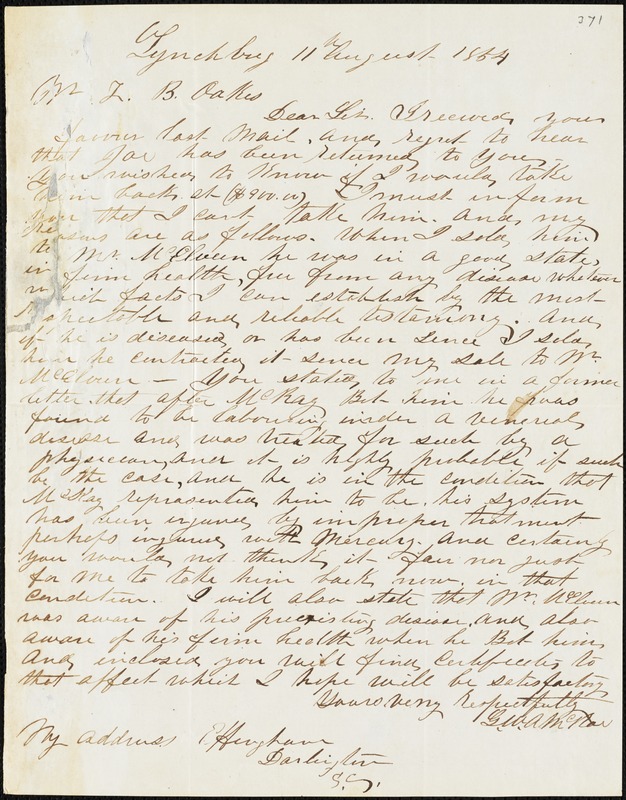 371
Lynchburg 11th August 1854
Mr Z. B. Oakes
Dear Sir. I received your
favour last mail, and regret to hear
that Joe has been returned to you
You wished to know if I would take
him back at ($900.00) I must in form
you that I cant take him. and my
reasons are as follows. When I sold him
to Mr. McElveen he was in a good state,
in firm health, free from any disease whatever
which facts I can establish by the most
respectable and reliable testamony. And
if he is diseased, or has been since I sold
him he contracted it since my sale to Mr
McElveen — You stated, to me in a former
letter that after McKay Bot him he was
found to be labouring under a venereal
disease and was treated for such by a
physician, and it is highly probable if such
be the case, and he is in the condition that
McKay represented him to be, his system
has been injured by improper treatment
perhaps injured with Mercury. And certainly
you would not think it fair nor just
for me to take him back now in that
condition. I will also state that Mr. McElveen
was aware of his preexisting disease, and also
aware of his firm health when he Bot him
And, inclosed you will find Certificates to
that affect which I hope will be satisfactory
Yours very respectfully
G.W.A. McRae
My address Effingham
Darlington
S.C.